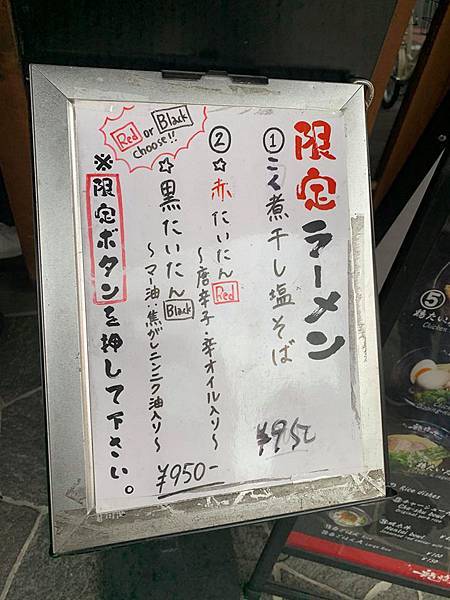 限定ラーメン
①こく煮干し塩そば
¥950
②☆赤たいたん Red
～唐辛子・辛オイル入り～
☆黒たいたん Black
～マー油・焦がしニンニク油入り～
¥950-
Red or Black
choose!!
※限定ボタンを押して下さい。
⑤
Rice dishes
Cha-shu bowl
Mentai bowl